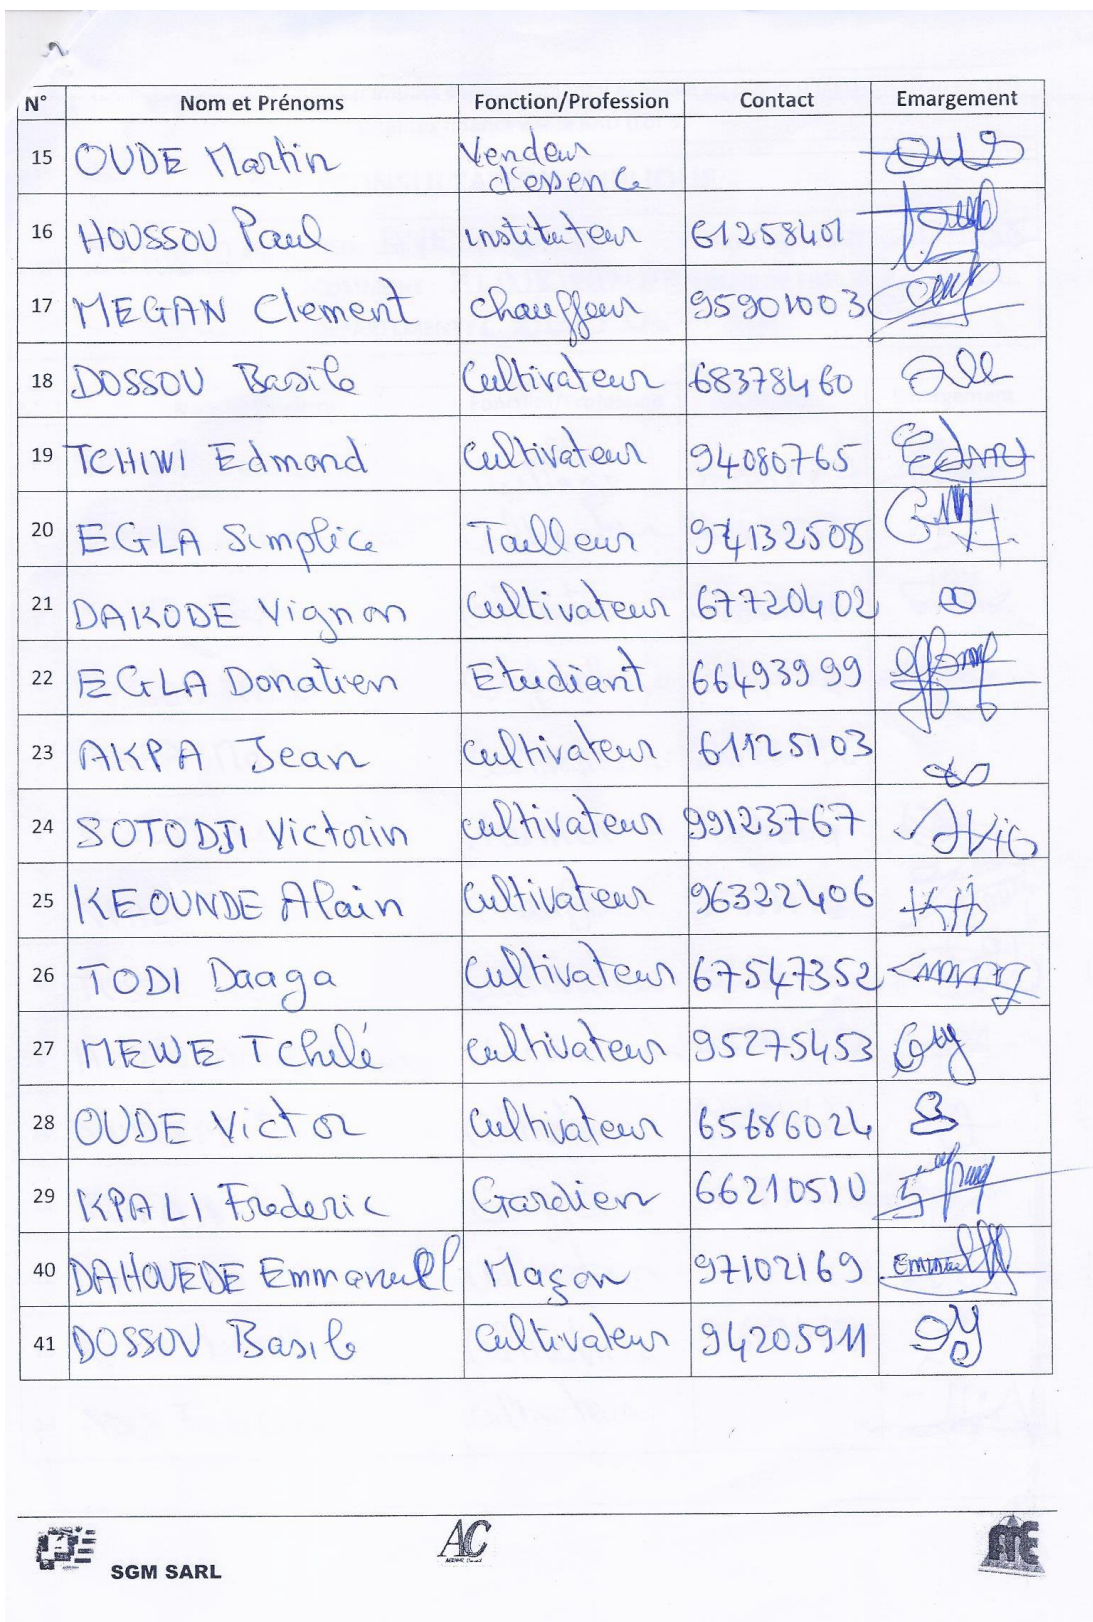 N° Nom et Prénoms Fonction/Profession Contact Emargement
15 OUDE Martin Vendeur d'essence
16 HOUSSOU Paul instituteur 61258401
17 MEGAN Clement chauffeur 95901003
18 DOSSOU Basile Cultivateur 68378460
19 TCHIWI Edmond Cultivateur 94080765
20 EGLA Simplice Tailleur 97132508
21 DAKODE Vignon Cultivateur 67720402
22 EGLA Donatien Etudiant 66493999
23 AKPA Jean Cultivateur 61125103
24 SOTODJI Victorin cultivateur 99123767
25 KEOUNDE Alain Cultivateur 96322406
26 TODI Daaga Cultivateur 67547352
27 MEWE TChélé Cultivateur 95275453
28 OUDE Victor Cultivateur 65686024
29 KPALI Frederic Gardien 66210510
40 DAHOUEDE Emmanuel Maçon 97102169
41 DOSSOU Basile Cultivateur 94205911
SGM SARL AC